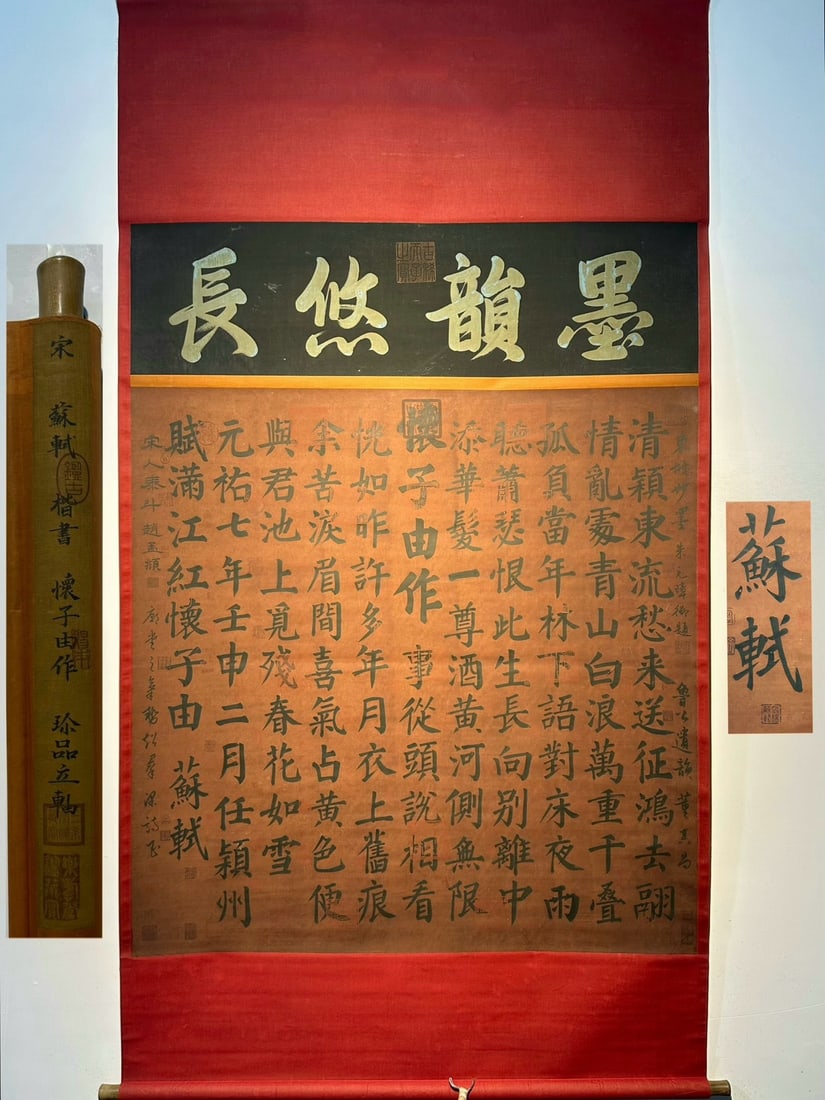 墨韻悠長
東坡妙墨 朱元璋御題
魯公遺韻 董其昌
清潁東流愁来送征鴻去翮
情亂處青山白浪萬重千疊
孤負當年林下語對床夜雨
聽蕭瑟恨此生長向别離中
添華髮一尊酒黄河側無限
懷子由作 事從頭說相看
恍如昨許多年月衣上舊痕
余苦淚眉間喜氣占黄色便
與君池上覓殘春花如雪
元祐七年壬申二月任潁州
賦滿江紅懷子由 蘇軾
宋人泰斗 趙孟頫
梁詩正
宋 蘇軾 楷書 懷子由作 珍品立軸
蘇軾